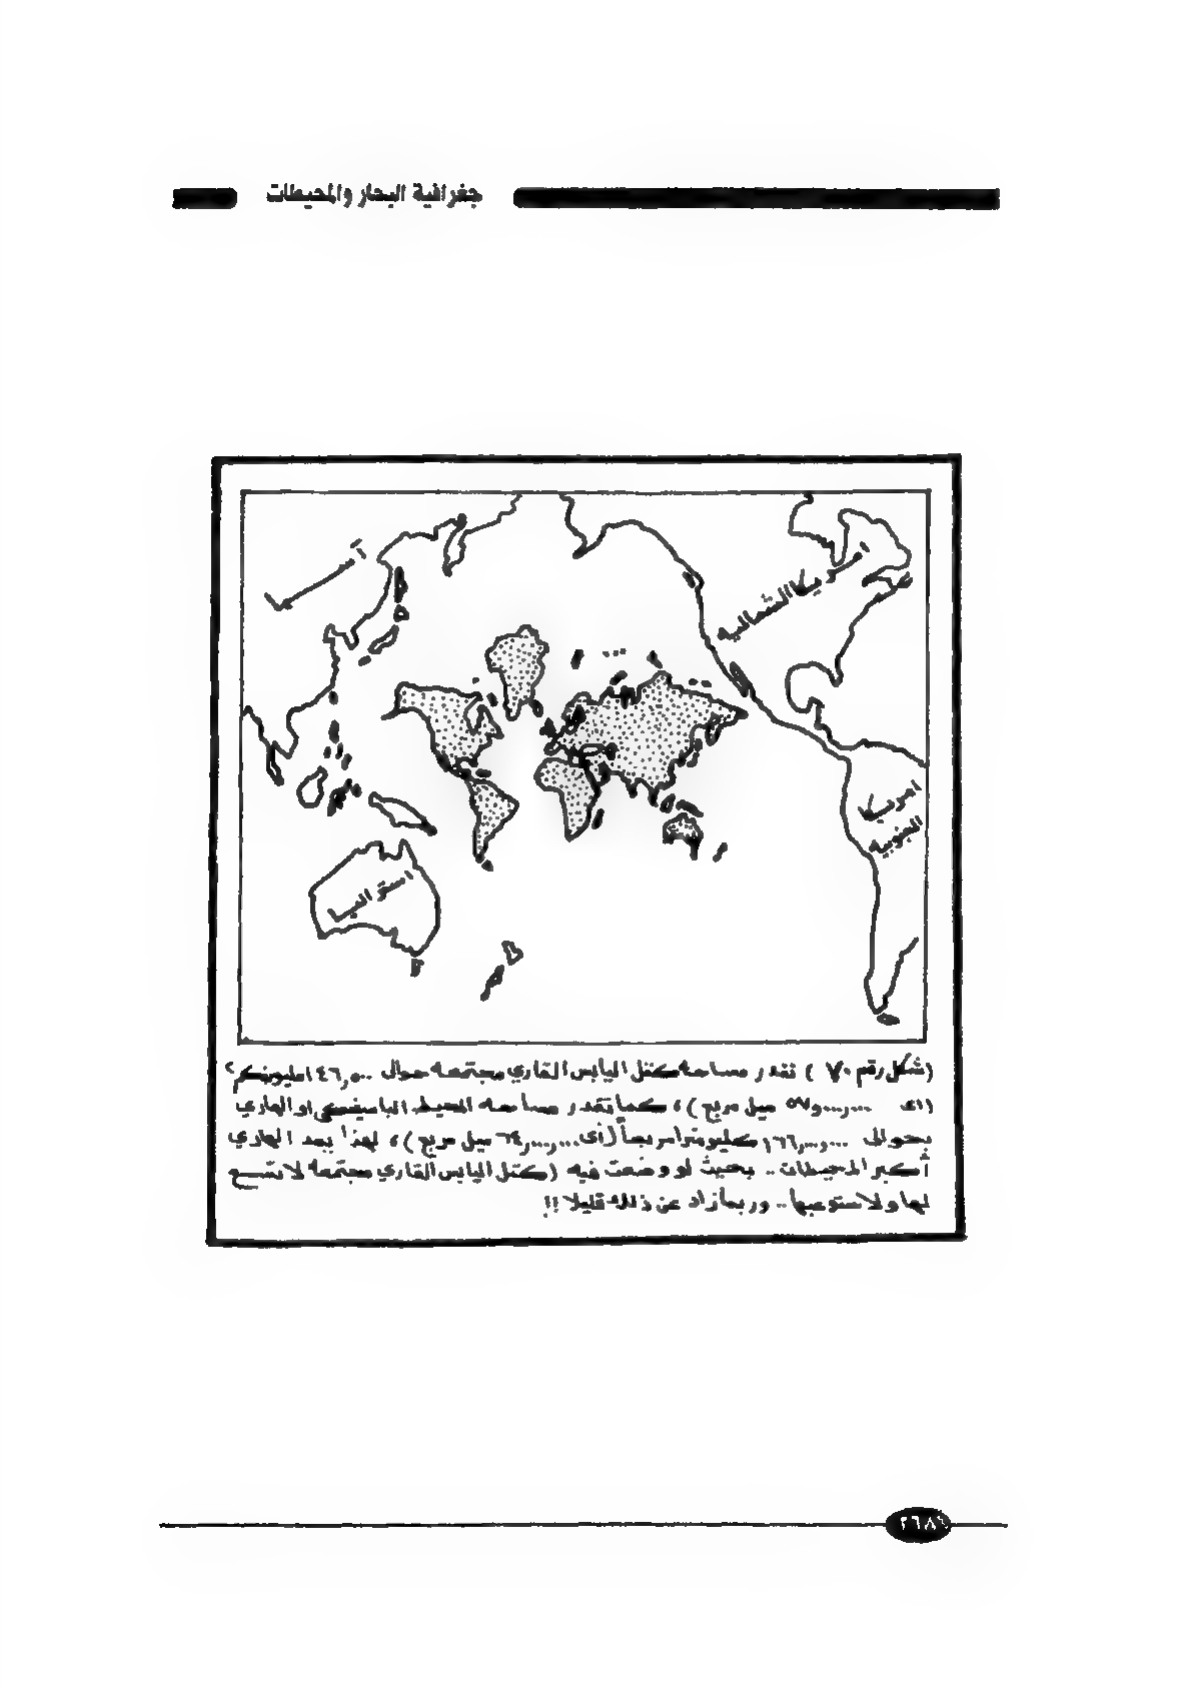 جغرافية البحار والمحيطات
آسيا
امريكا الشماليه
امريكا
الجنوبيه
استراليا
(شكل رقم ٧٠ ) تقدر مساحة كتل اليابس القاري مجتمعه حوالى ١٤٦٫٥٠٠ مليون كم٢
(اى ٥٧٫٠٠٠٫٠٠٠ ميل مربع ) ، كما تقدر مساحه المحيط الباسيفيكى او الهادي
بحوالى ١٦٦٫٠٠٠٫٠٠٠ كليومترا مربعاً (أى ٦٤٫٠٠٠٫٠٠٠ ميل مربع ) ، لهذا يعد الهادي
أكبر المحيطات .. بحيث لو وضعت فيه (كتل اليابس القاري مجتمعه لاتسع
لها ولاستوعبها .. وربما زاد عن ذلك قليلا !!